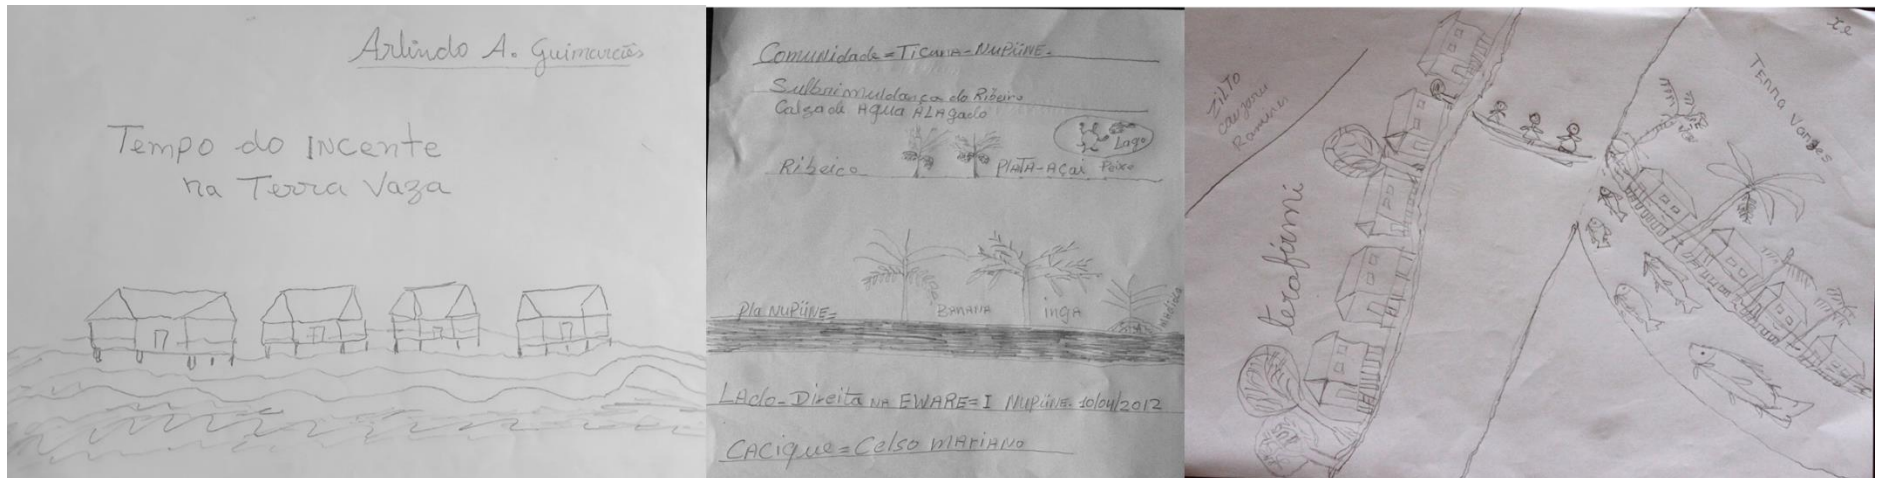 Arlindo A. Guimarães
Tempo do INCente
na Terra Vaza
Comunidade = Ticuna - NUPÜNE.
do Ribeiro
Calzada AGUA ALAgado
Lago
Ribeiro PLATA-AÇai Peixe
Pla NUPÜNE= BANANA ingA
LAdo-Direita NA EWARE=I NUPÜNE. 10/04/2012
CACique= Celso MARiANO
ZiLTO
Terra Vanges
terafirmi